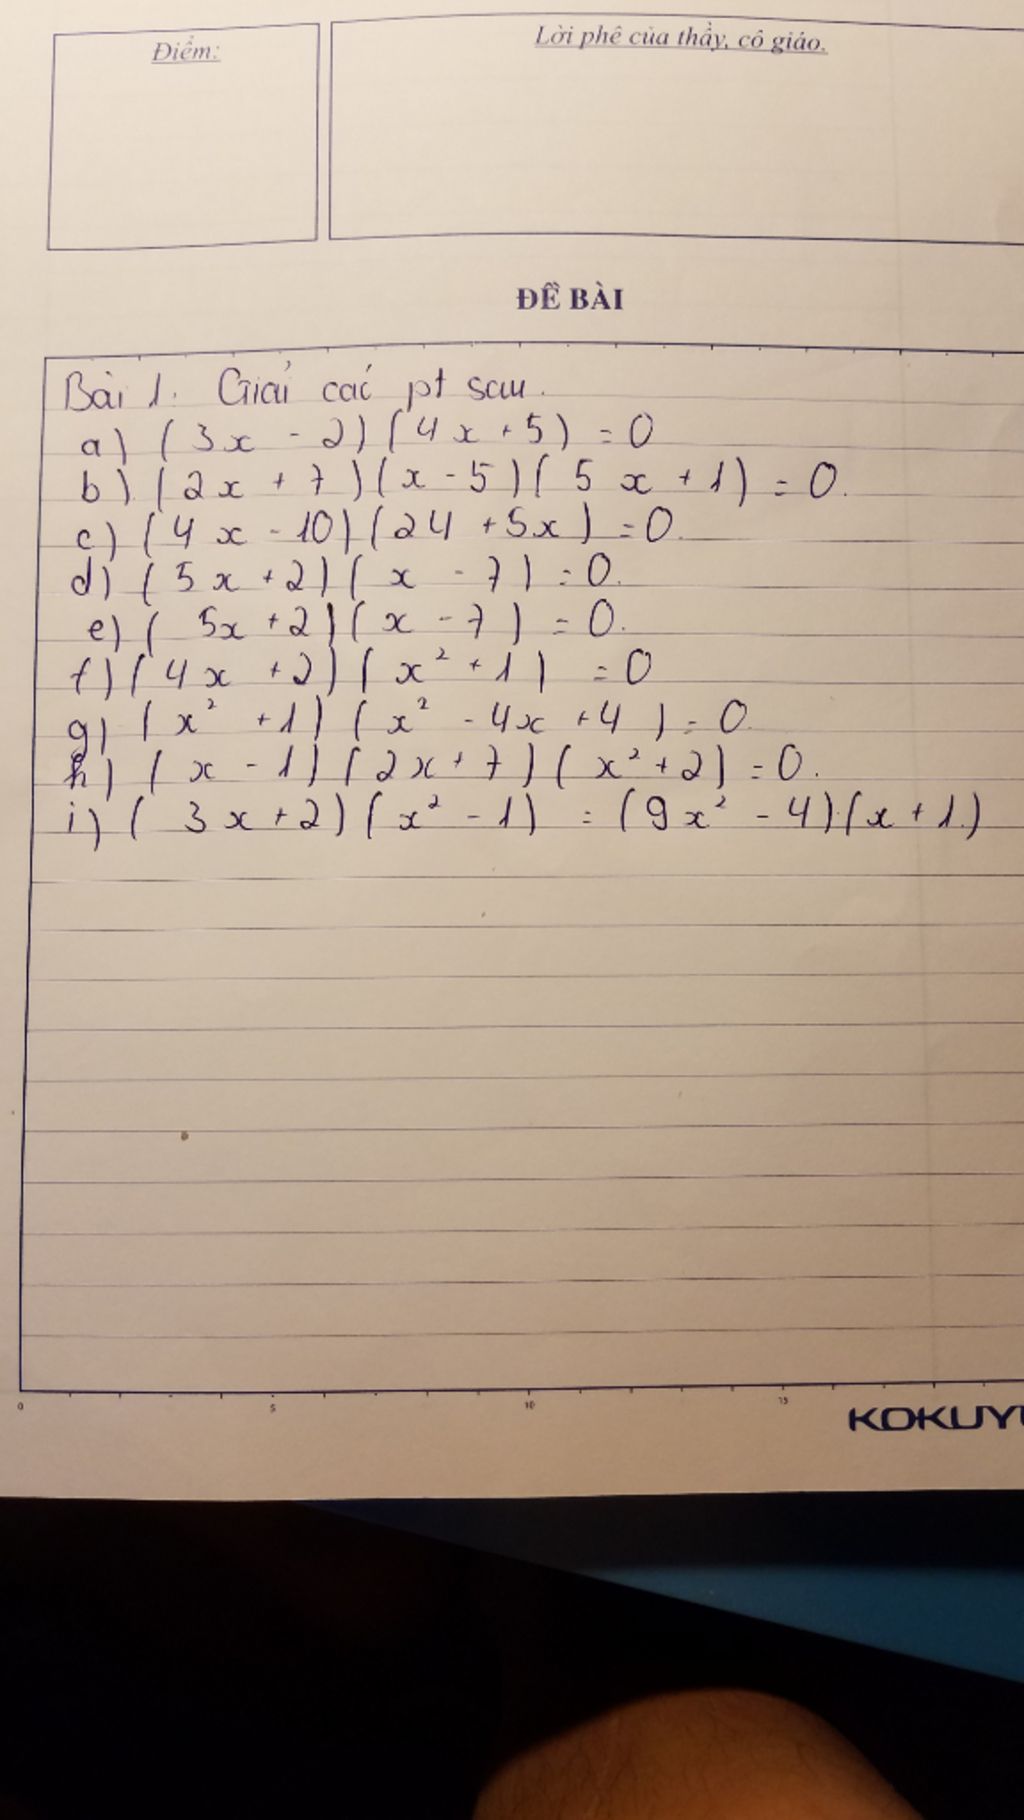 Điểm:
Lời phê của thầy, cô giáo.
ĐỀ BÀI
Bài 1. Giải các pt sau.
a) (3x - 2)(4x + 5) = 0
b) (2x + 7)(x - 5)(5x + 1) = 0.
c) (4x - 10)(24 + 5x) = 0.
d) (5x + 2)(x - 7) = 0.
e) (5x + 2)(x - 7) = 0.
f) (4x + 2)(x² + 1) = 0
g) (x² + 1)(x² - 4x + 4) = 0.
h) (x - 1)(2x + 7)(x² + 2) = 0.
i) (3x + 2)(x² - 1) = (9x² - 4)(x + 1)
0 5 10 15
KOKUY